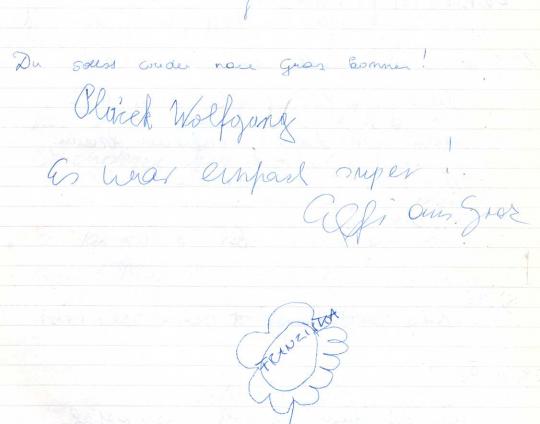 Du sollst wieder nach Graz kommen!
Plácek Wolfgang
Es war einfach super!
Effi aus Graz
FRANZISKA